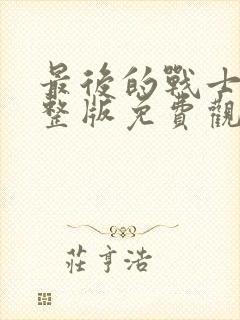 最後的戰士
整版免費觀
莊亨浩